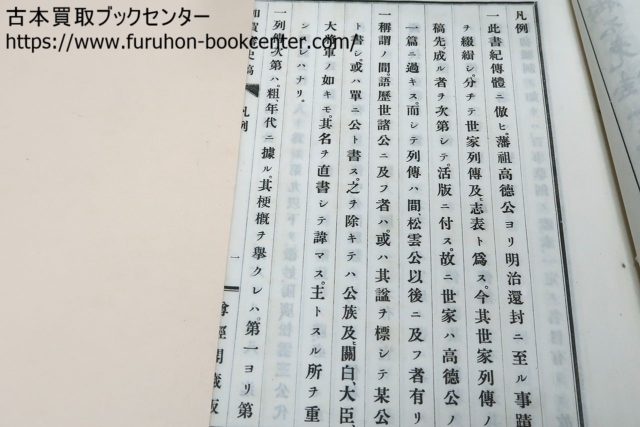 古本買取ブックセンター
https://www.furuhon-bookcenter.com/
凡例
一此書紀傳體ニ倣ヒ藩祖高德公ヨリ明治還封ニ至ル事蹟
ヲ綴緝シ分チテ世家列傳及ヒ志表ト爲ス。今其世家列傳ノ
稿先成ル者ヲ次第シテ。活版ニ付ス。故ニ世家ハ高德公ノ
一篇ニ過キス。而シテ列傳ハ間松雲公以後ニ及フ者有リ
一稱謂ノ間。語歷世諸公ニ及フ者ハ。或ハ其諡ヲ標シテ某公
ト書シ。或ハ單ニ公ト書ス。之ヲ除キテハ公族及ヒ關白、大臣、
大將軍ノ如キモ。其名ヲ直書シテ諱マス。主トスル所ヲ重
ンスレハナリ。
一列傳次第ハ。粗年代ニ據ル。其梗槪ヲ擧クレハ。第一ヨリ第
史稿
凡例
一
尊經閣藏版